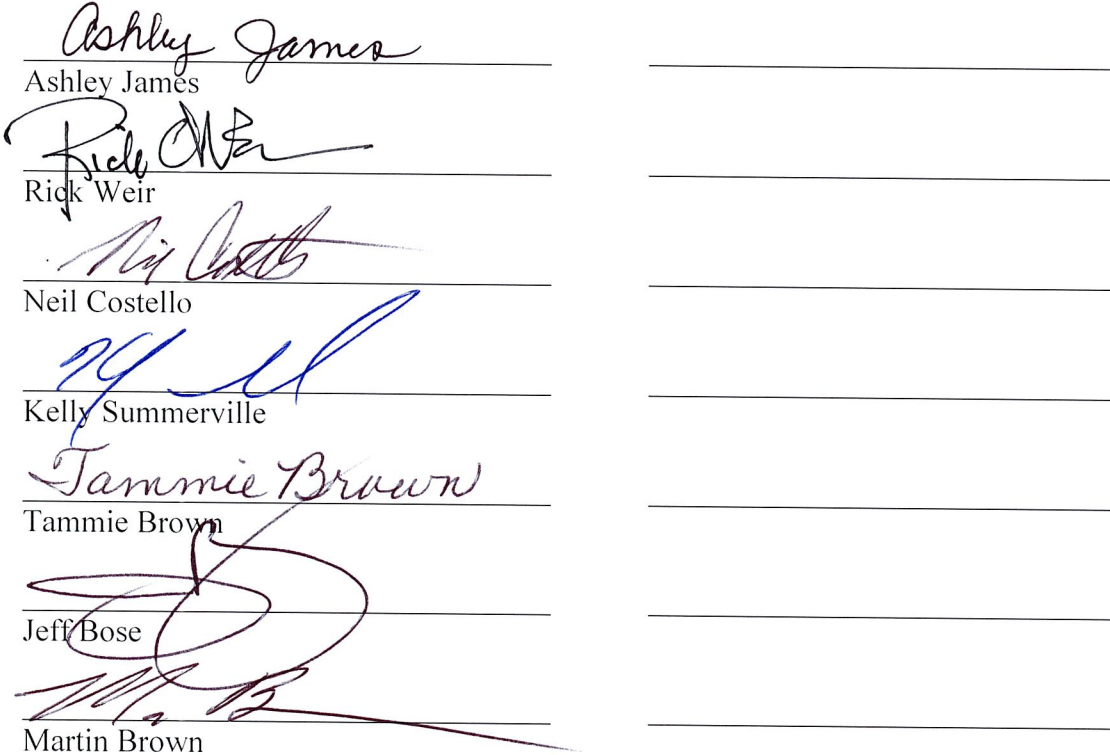 Ashley James
Ashley James
Rick Weir
Neil Costello
Kelly Summerville
Tammie Brown
Tammie Brown
Jeff Bose
Martin Brown